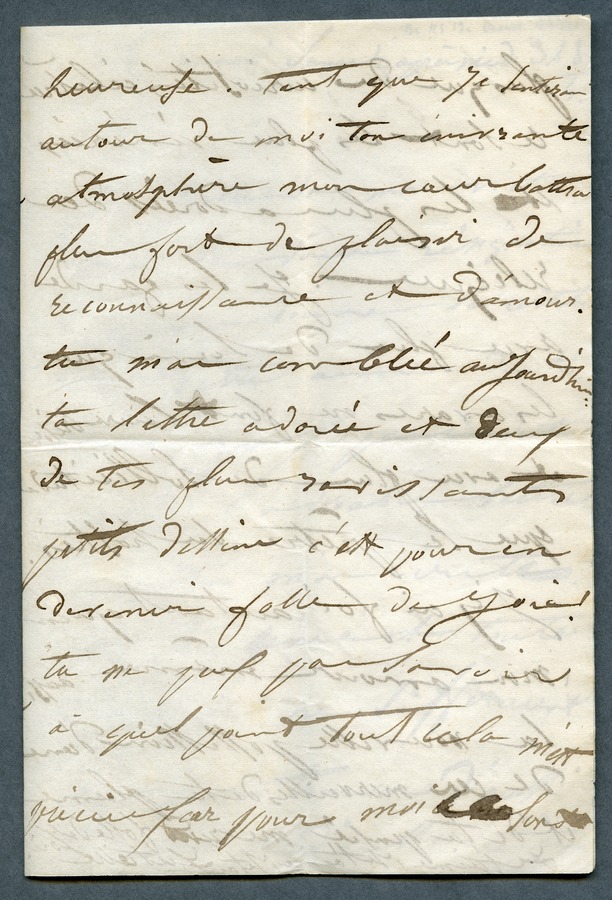 heureuse. tant que je sentirai
autour de moi ton enivrante
atmosphère mon cœur battra
plus fort de plaisir de
reconnaissance et d'amour.
tu m'as comblée aujourd'hui:
ta lettre adorée et deux
de tes plus ravissants
petits dessins c'est pour en
devenir folle de joie!
tu ne peux pas savoir
à quel point tout cela m'est
précieux car pour moi ce sont